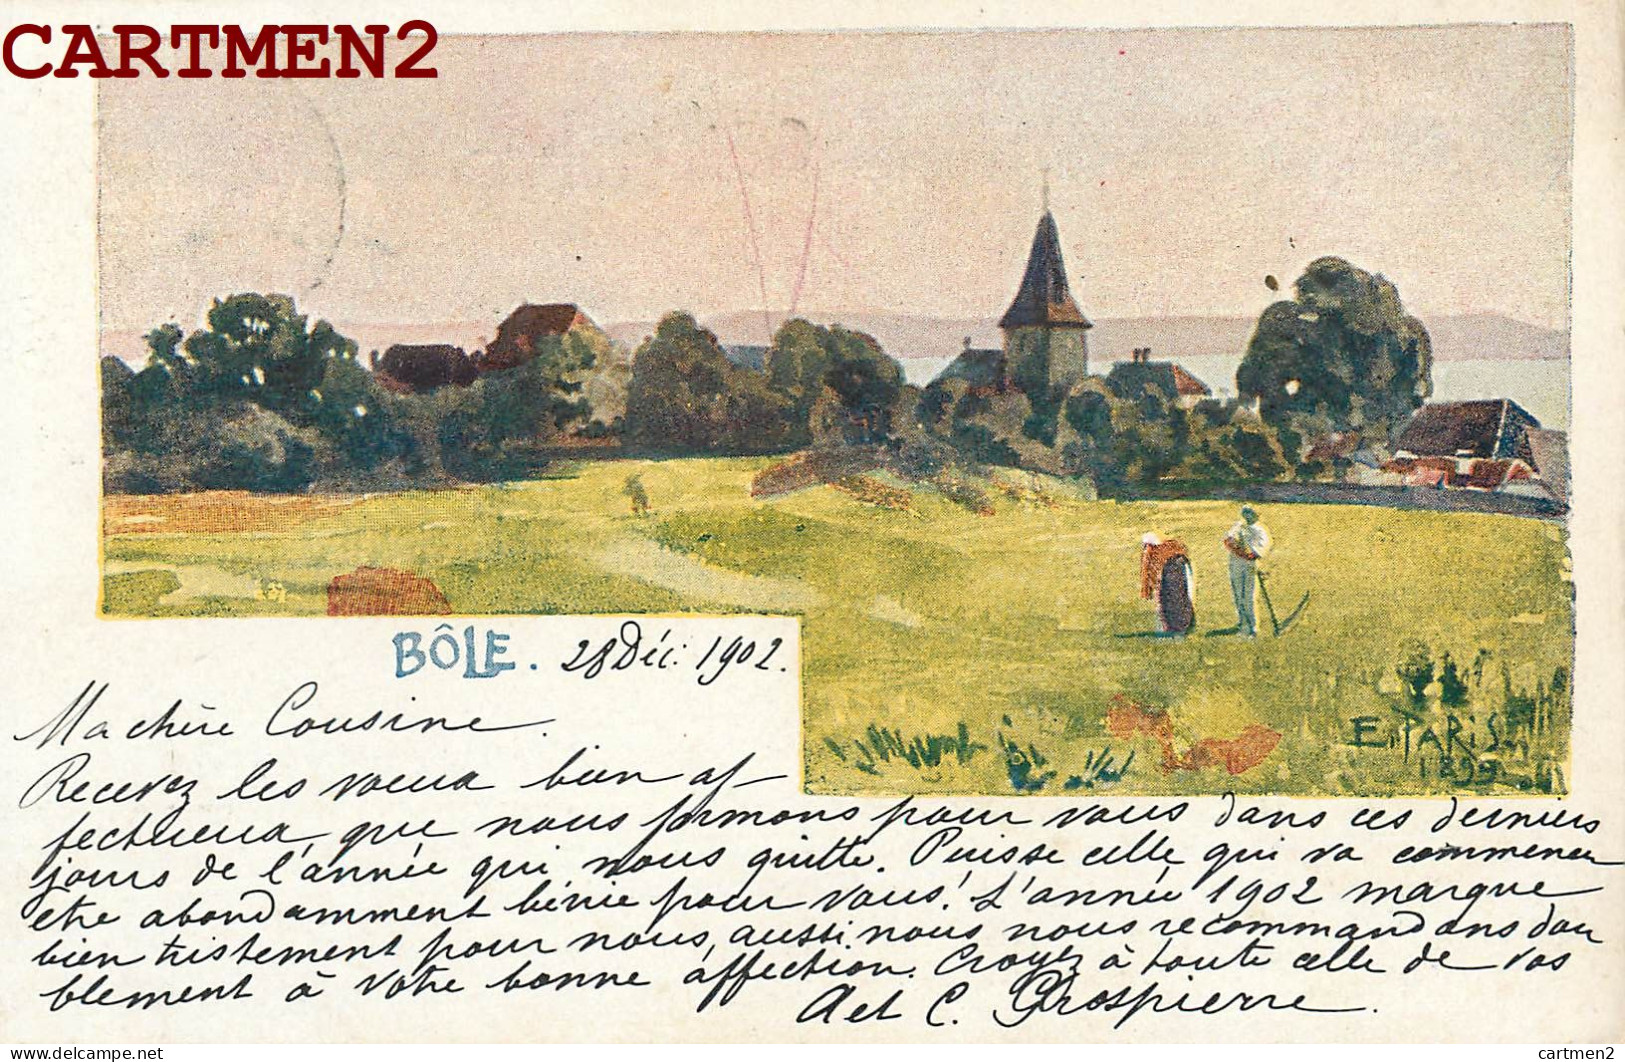 CARTMEN2
BÔLE. 28 Déc: 1902.
Ma chère Cousine.
Recevez les voeux bien af-
fectueux, que nous formons pour vous dans ces derniers
jours de l'année qui nous quitte. Puisse celle qui va commencer
etre abondamment bénie pour vous! L'année 1902 marque
bien tristement pour nous, aussi nous nous recommandons dou
blement à votre bonne affection. Croyez à toute celle de vos
A et C. Grospierre.
E. PARIS
1899
cartmen2
cartmen2